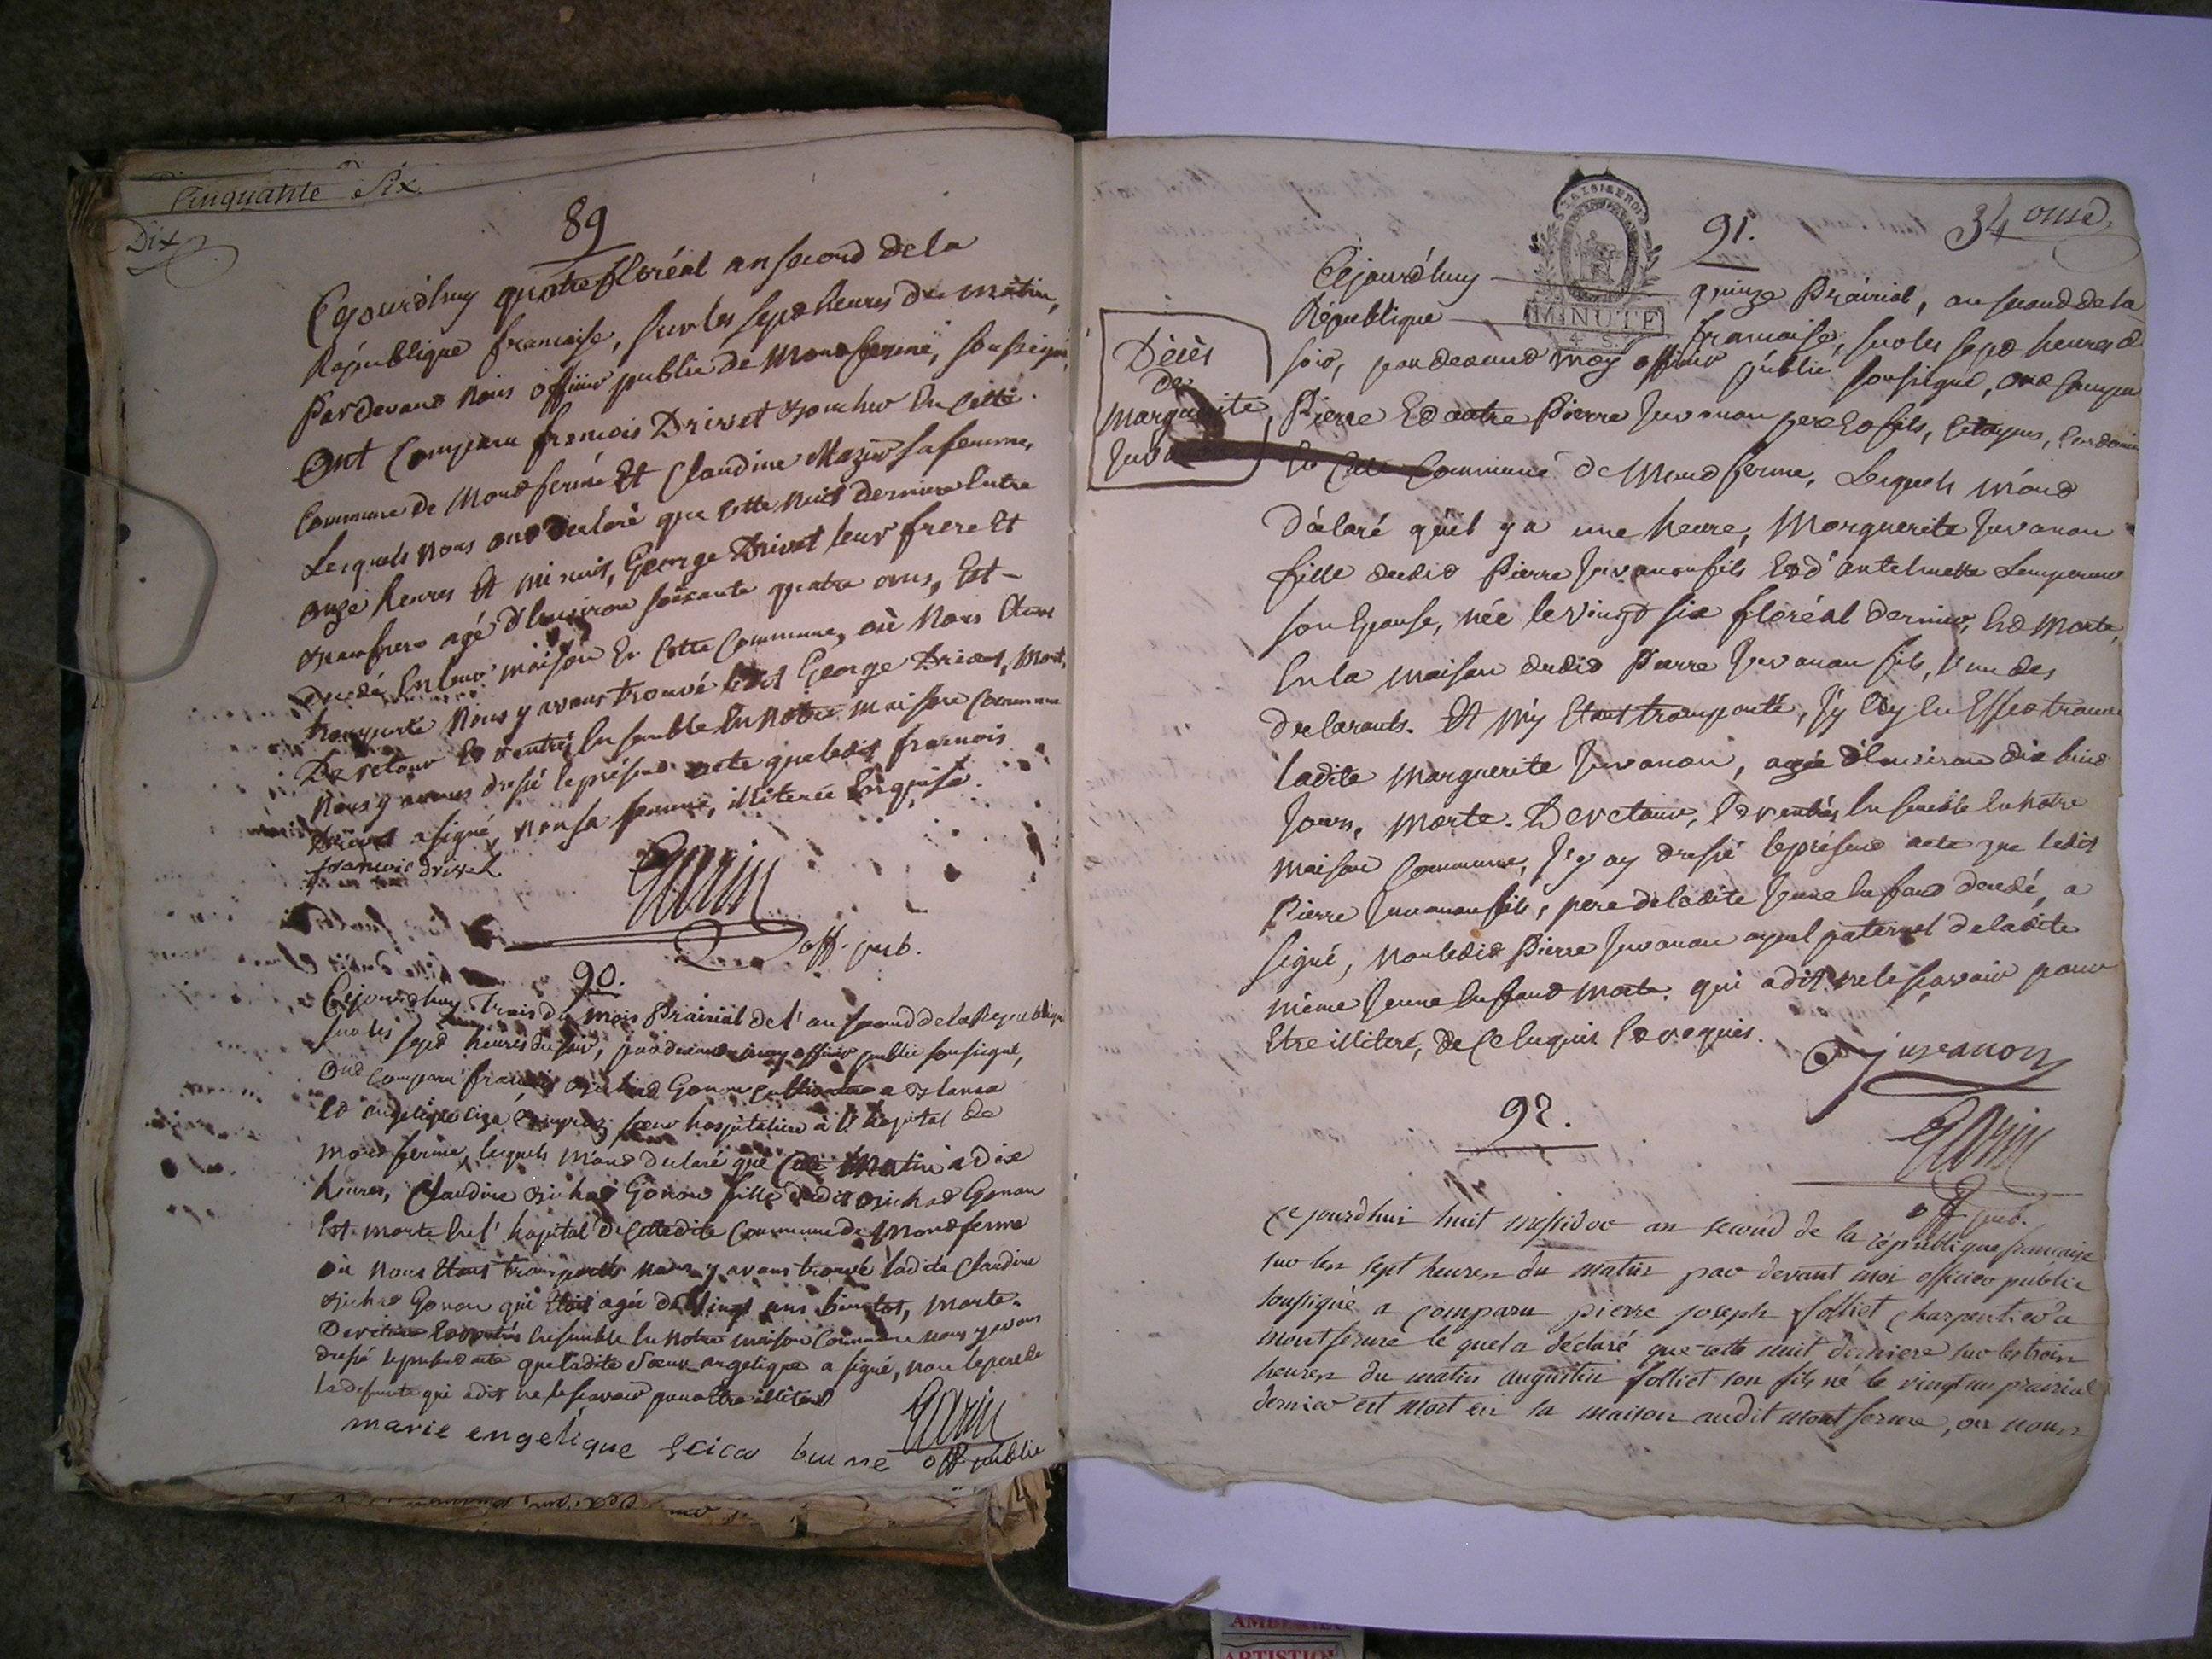 Cinquante Six
Dix
89
Cejourdhuy quatre floréal an second de la
République francaise, sur les sept heures du matin,
Pardevant nous officier public de Montferme, soussigné,
Ont Comparu francois Drivet en cette
Commune de Montferme Et Claudine Mazur sa femme,
Lesquels nous ont declaré que cette nuit derniere Entre
onze heures Et minuit, George Drivet leur frere Et
beaufrere agé d'Environ soixante quatre ans, Est
decedé En leur maison En Cette Commune, où Nous Etant
transporté Nous y avons trouvé ledit George Drivet, Mort.
De retour Et rentrés Ensemble En Notre maison Commune
Nous y avons dressé le présent acte que ledit francois
Drivet a signé, non sa femme, illiterée Enquise.
francois drivet
off. pub.
90.
Cejourdhuy Trois du mois Prairial de l'an second de la Republique
sur les sept heures du soir, pardevant moy officier public soussigné,
Ont Comparu francois Gonon
Et angelique sœur hospitaliere à l'hopital de
Montferme, lesquels m'ont declaré que Ce Matin a dix
heures, Claudine Gonon fille dudit Gonon
Est morte En l'hopital de Cettedite Commune de Montferme
où Nous Etant transportés Nous y avons trouvé ladite Claudine
Gonon qui Etoit agée de Vingt ans bientot, morte.
De retour Et rentrés Ensemble En Notre maison Commune nous y avons
dressé le présent acte que ladite Sœur angelique a signé, non le pere de
la defunte qui a dit ne le scavoir pour Etre illiteré
marie engelique
off. public
91.
34 onze
MINUTE
4 S.
Décès
de
Marguerite
Juvanon
Cejourd'huy quinze Prairial, an second de la
République francaise, sur les sept heures du
soir, pardevant moy officier public soussigné, ont Comparu
Pierre Et autre Pierre Juvanon pere Et fils, Citoyens,
En Cette Commune de Montferme, Lesquels m'ont
déclaré qu'il y a une heure, Marguerite Juvanon
fille dudit Pierre Juvanon fils Et d'antelmette
son Epouse, née le vingt six floréal dernier, Est Morte
En la maison dudit Pierre Juvanon fils, l'un des
declarants. Et m'y Etant transporté, J'y ay En Effet trouvé
ladite Marguerite Juvanon, agée d'Environ dix huit
Jours, Morte. De retour, Et rentrés Ensemble En Notre
maison Commune, J'y ay dressé le présent acte que ledit
Pierre Juvanon fils, pere de ladite Jeune Enfant decedé, a
signé, non ledit Pierre Juvanon ayeul paternel de ladite
même Jeune Enfant Morte, qui a dit ne le scavoir pour
Etre illiteré, de Ce Enquis Et requis.
juvanon
off. pub.
92.
Cejourdhui huit messidor an second de la république francaise
sur les sept heures du matin par devant moi officier public
soussigné a comparu pierre joseph folliet charpentier a
montferme le quel a déclaré que cette nuit derniere sur les trois
heures du matin augustin folliet son fils né le vingt un prairial
dernier est mort en sa maison audit montferme, ou nous